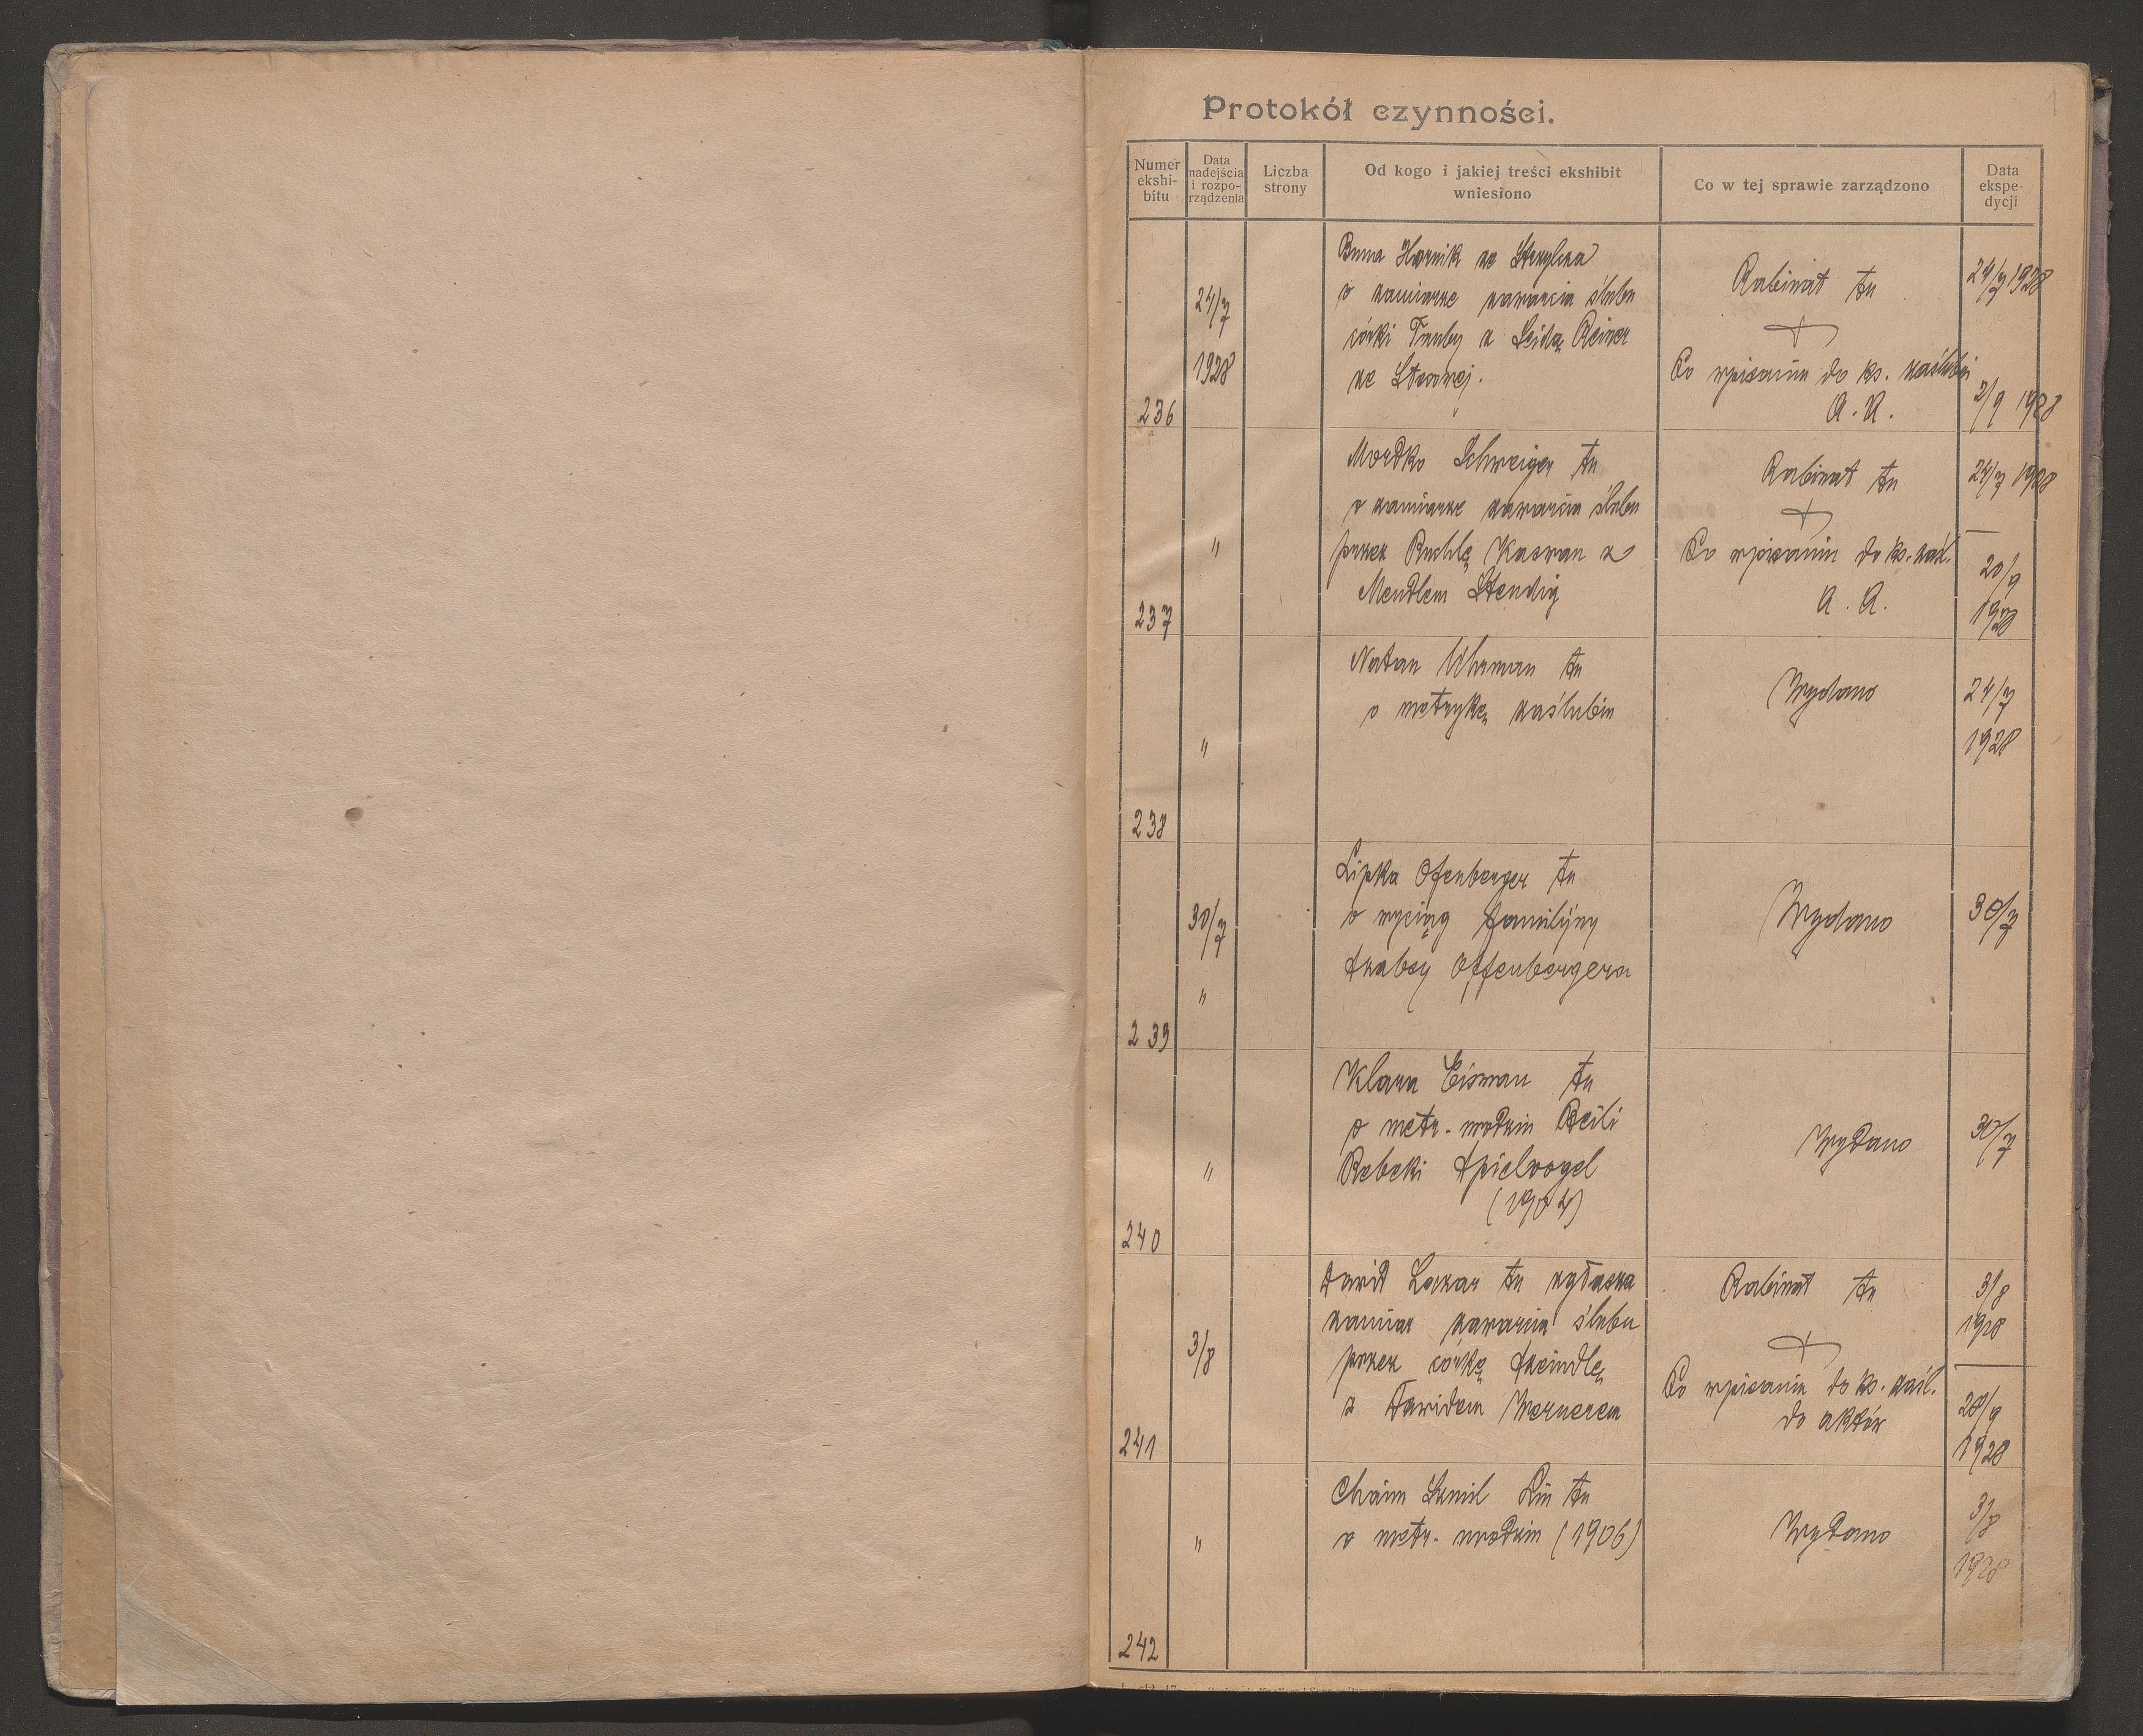 1
Protokół czynności.
Numer ekshi- bitu
Data nadejścia i rozpo- rządzenia
Liczba strony
Od kogo i jakiej treści ekshibit wniesiono
Co w tej sprawie zarządzono
Data ekspe- dycji
236
24/7
1928
Hornik ze
o zamiarze zawarcia ślubu
córki Tauby z Reiner
ze
Rabinat tu
Po wpisaniu do ks. zaślubin
A. A.
24/7 1928
2/9 1928
237
"
Mordko Schweiger tu
o zamiarze zawarcia ślubu
przez Ruchlę z
Mendlem Stendig
Rabinat tu
Po wpisaniu do ks. zaśl.
A. A.
24/7 1928
20/9
1928
238
"
Natan Uhrman tu
o metrykę zaślubin
Wydano
24/7
1928
239
30/7
"
Lipka Ofenberger tu
o wyciąg familijny
Offenbergera
Wydano
30/7
240
"
Klara Eisman tu
o metr. urodzin Reili
Rebeki Spielvogel
(1904)
Wydano
30/7
241
3/8
Dawid Lazar tu zgłasza
zamiar zawarcia ślubu
przez córkę Szeindlę
z Dawidem Wernerem
Rabinat tu
Po wpisaniu do ks. zaśl.
do aktów
3/8
1928
20/9
1928
242
"
Chaim tu
o metr. urodzin (1906)
Wydano
3/8
1928